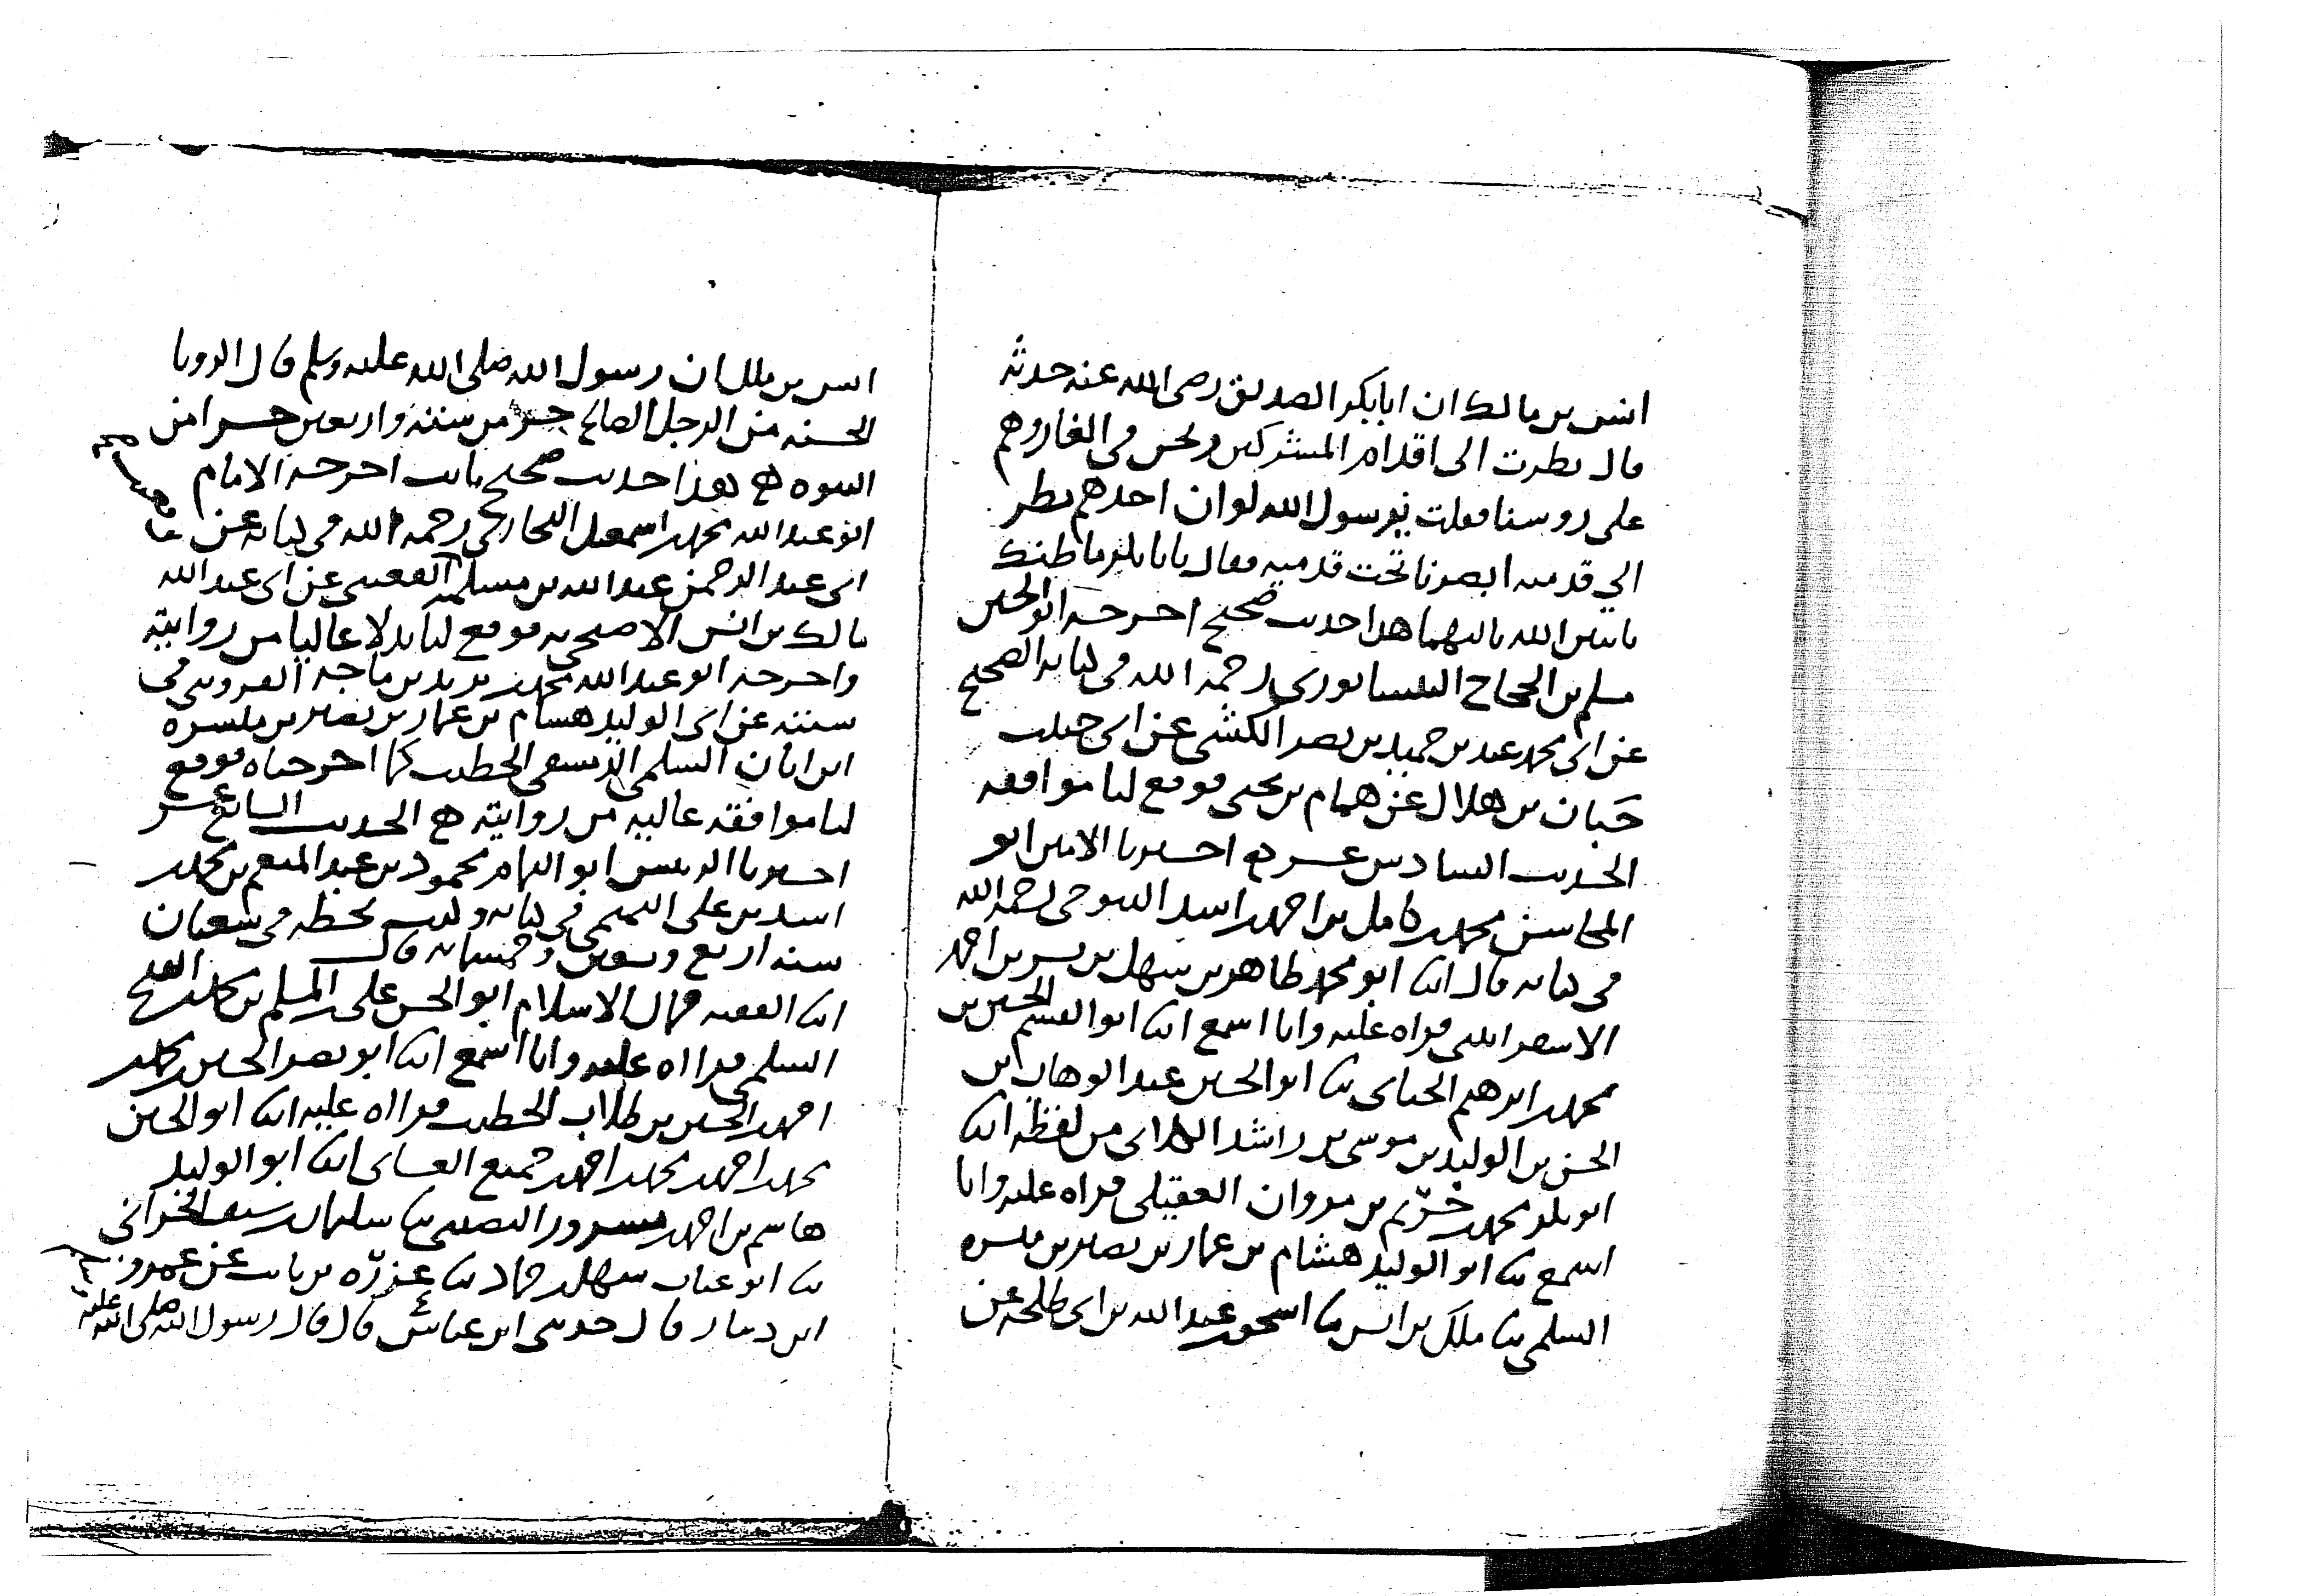 انس بن مالك ان ابا بكر الصديق رضى الله عنه حدثه
قال نظرت الى اقدام المشركين ونحن في الغار وهم
على روسنا فقلت يرسول الله لوان احدهم نظر
الي قدميه ابصرنا تحت قدميه فقال يا با بكر ما ظنك
باثنين الله ثالثهما هذا حديث صحيح اخرجه ابو الحسين
مسلم بن الحجاج النيسابوري رحمه الله في كتابه الصحيح
عن ابي محمد عبد بن حميد بن نصر الكشى عن ابي حبيب
حَبان بن هلال عن همام بن يحيى فوقع لنا موافقه
الحديث السادس عشر اخبرنا الامين ابو
المحاسن محمد بن كامل بن احمد بن اسد التنوخى رحمه الله
في كتابه قال انا ابو محمد طاهر بن سهل بن بشر بن احمد
الاسفراييني قراه عليه وانا اسمع انا ابو القسم الحسين بن
محمد بن ابرهيم الحنائي ثنا ابو الحسين عبد الوهاب بن
الحسن بن الوليد بن موسى بن راشد الكلابي من لفظه انا
ابو بكر محمد بن خُرَيم بن مروان العقيلي قراه عليه وانا
اسمع ثنا ابو الوليد هشام بن عمار بن نصير بن ميسره
السلمي ثنا ملك بن انس ثنا اسحق بن عبد الله بن ابي طلحه عن
انس بن ملك ان رسول الله صلى الله عليه وسلم قال الرويا
الحسنه من الرجل الصالح جزو من ستة واربعين جزا من
النبوه هذا حديث صحيح ثابت اخرجه الامام
ابو عبد الله محمد بن اسمعيل البخاري رحمه الله في كتابه عن
ابي عبد الرحمن عبد الله بن مسلمه القعنبي عن ابي عبد الله
مالك بن انس الاصبحي به فوقع لنا بدلا عاليا من روايته
واخرجه ابو عبد الله محمد بن يزيد بن ماجه القزويني في
سننه عن ابي الوليد هشام بن عمار بن نصير بن ميسره
ابن ابان السلمي الدمشقي الخطيب كما اخرجناه فوقع
لنا موافقة عاليه من روايته الحديث السابع عشر
اخبرنا الرئيس ابو التمام محمود بن عبد المنعم بن محمد
اسد بن على التميمي في كتابه وكتب بخطه في شعبان
سنه اربع وسبعين وخمسمايه قال
انا الفقيه جمال الاسلام ابو الحسن على بن المسلم بن محمد بن الفتح
السلمي قراه عليه وانا اسمع انا ابو نصر الحسين بن محمد
احمد بن الحسين بن طلاب الخطيب قراه عليه انا ابو الحسين
محمد بن احمد بن محمد بن احمد بن جميع الغساني انا ابو الوليد
هاشم بن احمد بن مسرور النصيبي ثنا سليمان بن سيف الحراني
ثنا ابو عتاب سهل بن حماد ثنا عزره بن ثابت عن عمرو
ابن دينار قال حدثني ابن عباس قال قال رسول الله صلى الله عليه